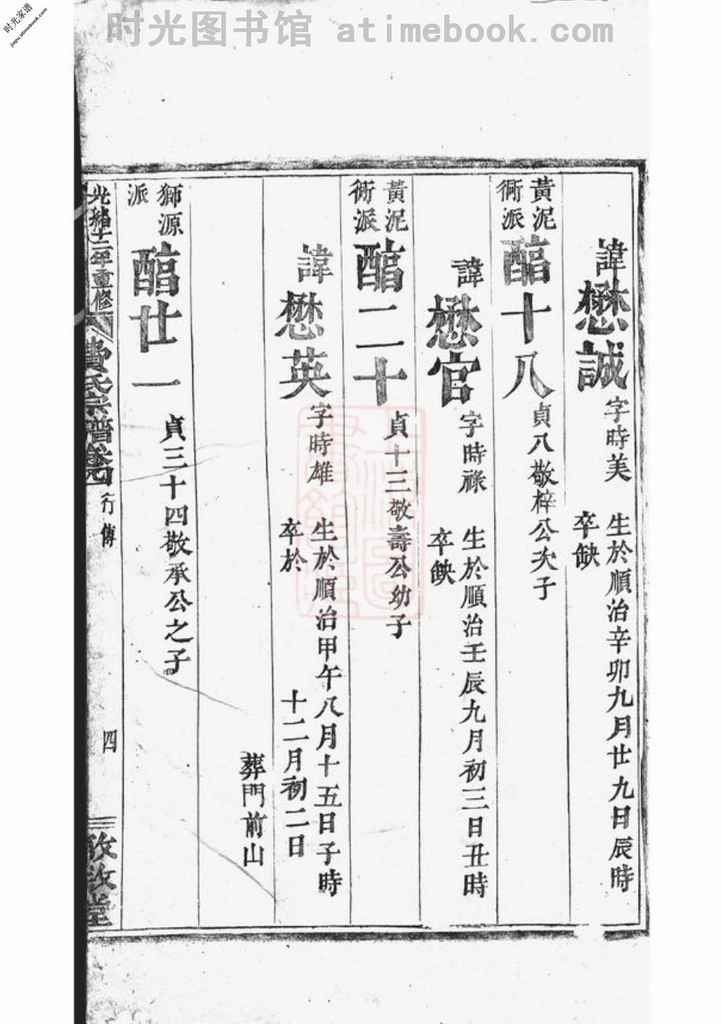 时光图书馆 atimebook.com
时光家谱
jiapu.atimebook.com
諱懋誠字時美
生於順治辛卯九月廿九日辰時
卒缺
黃泥
衕派
醕十八貞八敬梓公次子
諱懋官字時祿
生於順治壬辰九月初三日丑時
卒缺
黃泥
衕派
醕二十貞十三敬壽公幼子
諱懋英字時雄
生於順治甲午八月十五日子時
卒於 十二月初二日
葬門前山
獅源
派
醕廿一 貞三十四敬承公之子
光緒十二年重修 費氏宗譜卷 行傳 四